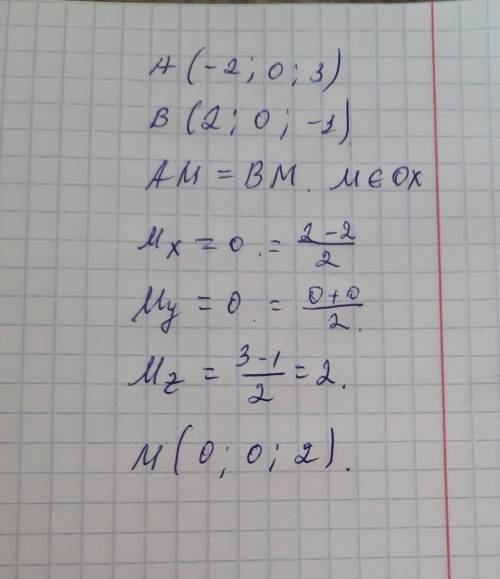 A (-2; 0; 3)
B (2; 0; -1)
AM = BM. M ∈ OX
Mx = 0. = \frac{2-2}{2}
My = 0. = \frac{0+0}{2}.
Mz = \frac{3-1}{2} = 2.
M (0; 0; 2).